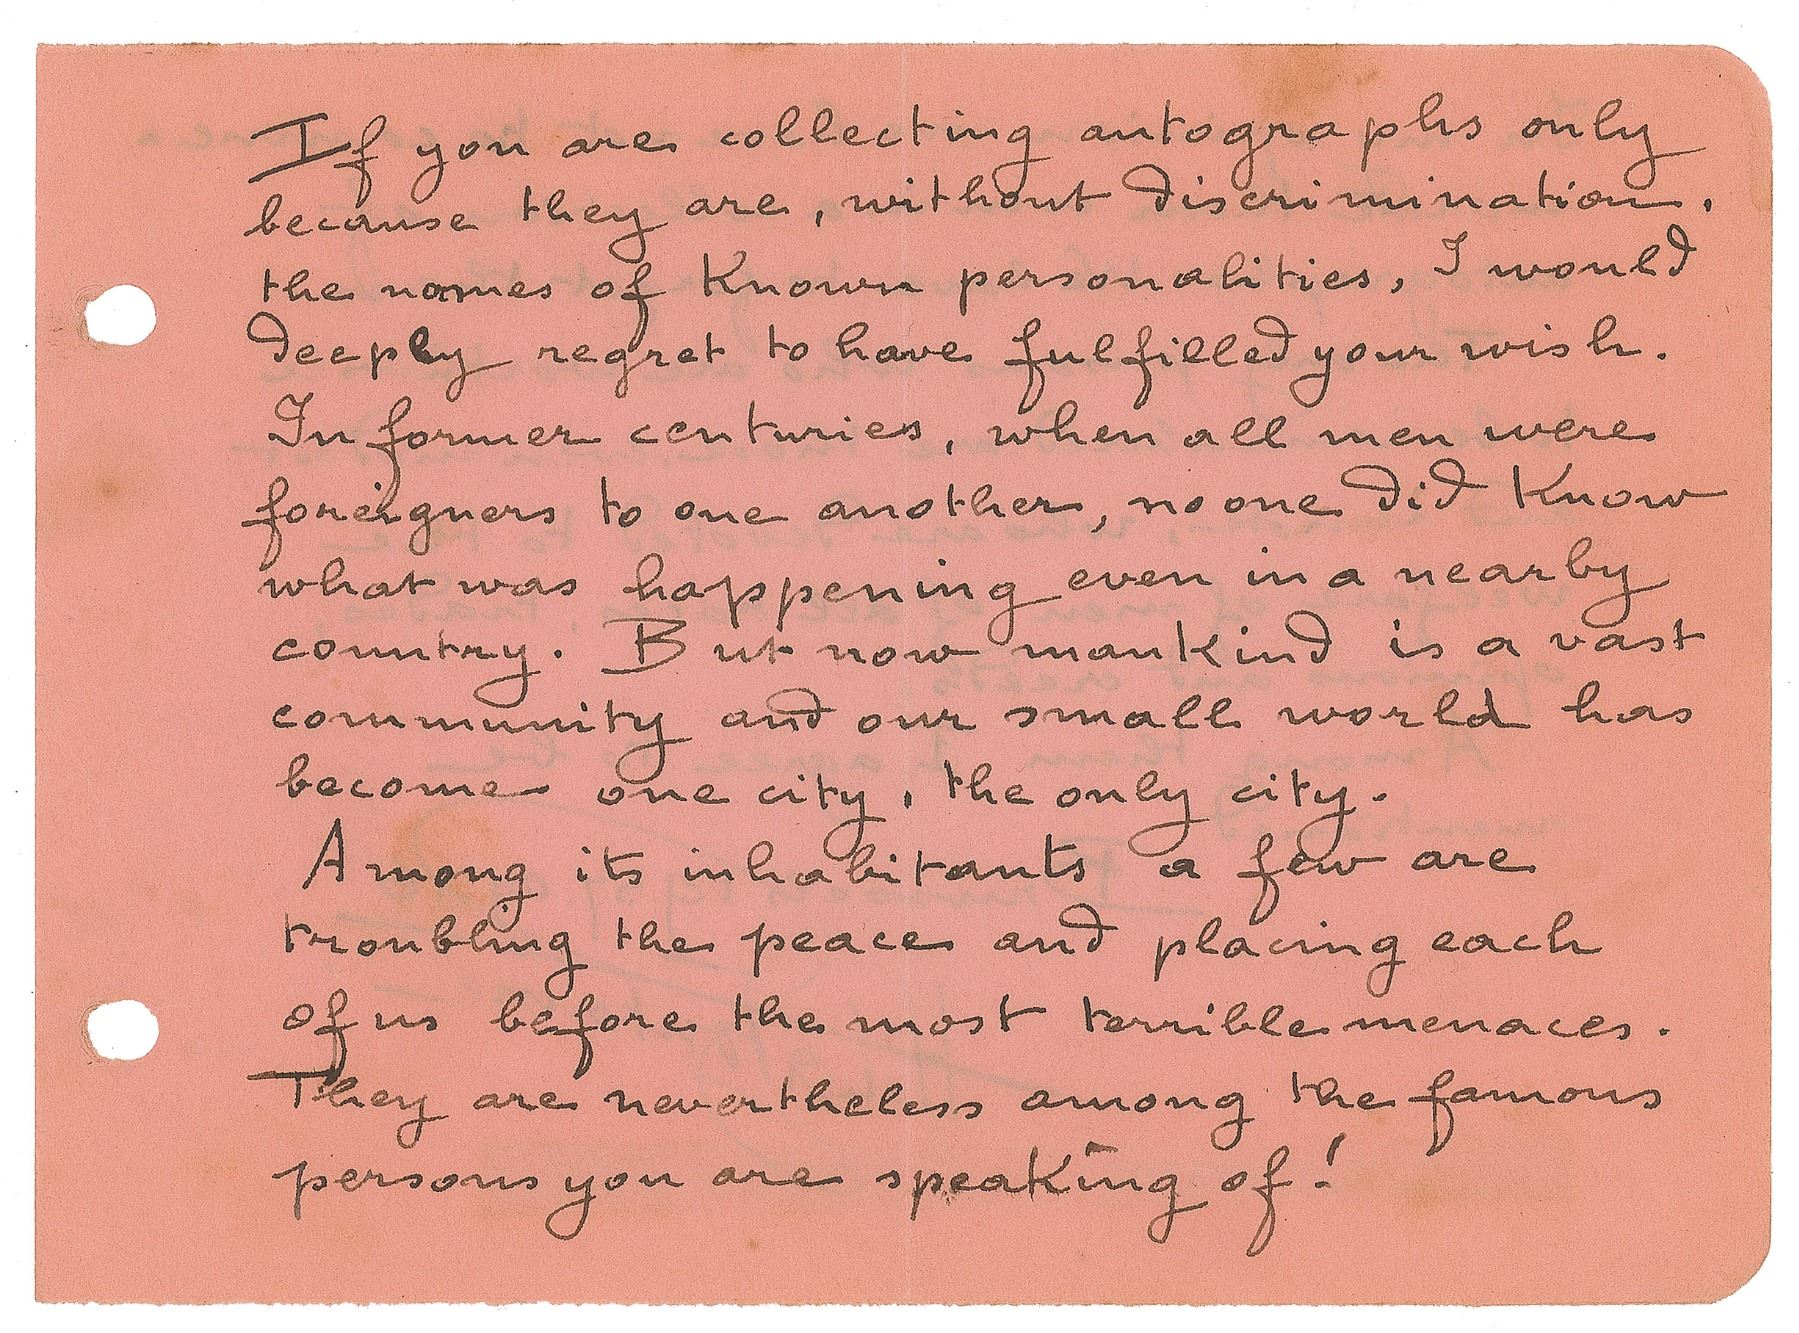 If you are collecting autographs only
because they are, without discrimination,
the names of known personalities, I would
deeply regret to have fulfilled your wish.
In former centuries, when all men were
foreigners to one another, no one did know
what was happening even in a nearby
country. But now mankind is a vast
community and our small world has
become one city, the only city.
Among its inhabitants a few are
troubling the peace and placing each
of us before the most terrible menaces.
They are nevertheless among the famous
persons you are speaking of!